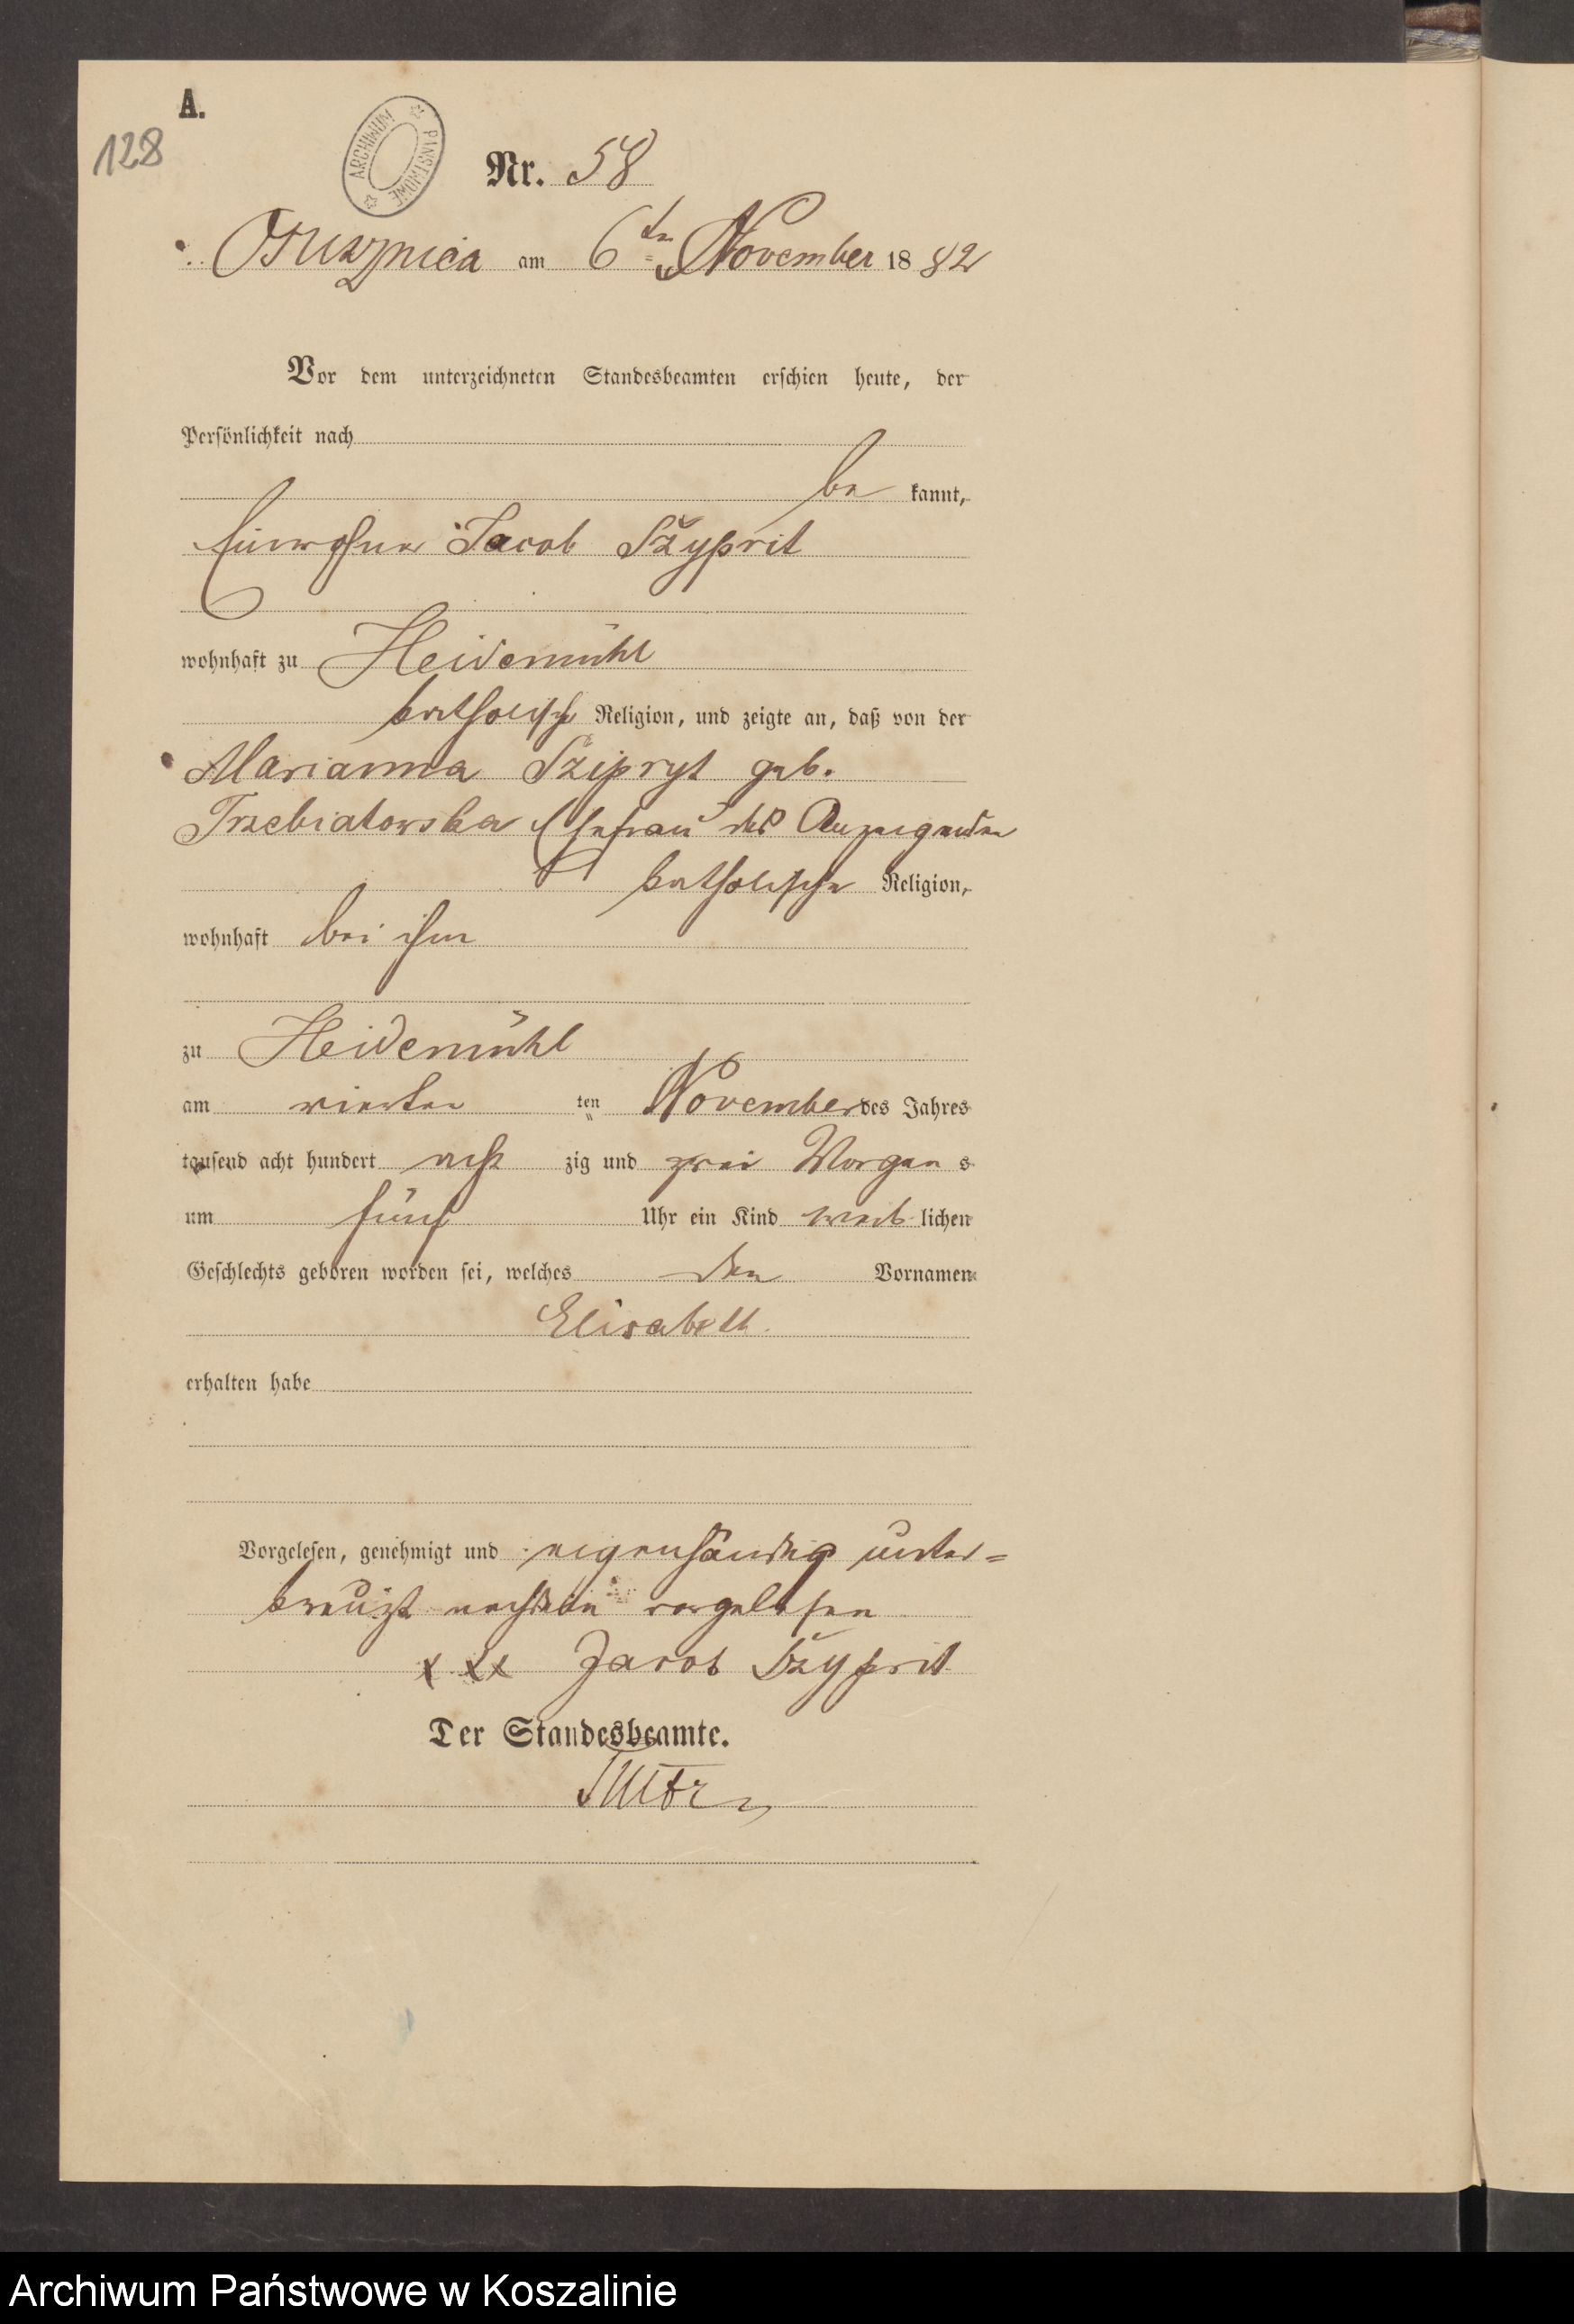 A.
128
ARCHIWUM PAŃSTWOWE
Nr. 58
Ossusznica am 6ten November 1882
Vor dem unterzeichneten Standesbeamten erschien heute, der
Persönlichkeit nach
be kannt,
Einwohner Jacob Szyprit
wohnhaft zu Heidemühl
katholisch Religion, und zeigte an, daß von der
Marianna Szipryt geb.
Trzebiatowska Ehefrau des Anzeigenden
katholischer Religion,
wohnhaft bei ihm
zu Heidemühl
am vierten ten November des Jahres
tausend acht hundert acht zig und zwei Morgen s
um fünf Uhr ein Kind weib lichen
Geschlechts geboren worden sei, welches den Vornamen
Elisabeth
erhalten habe
Vorgelesen, genehmigt und eigenhändig unter=
kreuzt nachdem vorgelesen
xxx Jacob Szyprit
Der Standesbeamte.
Archiwum Państwowe w Koszalinie